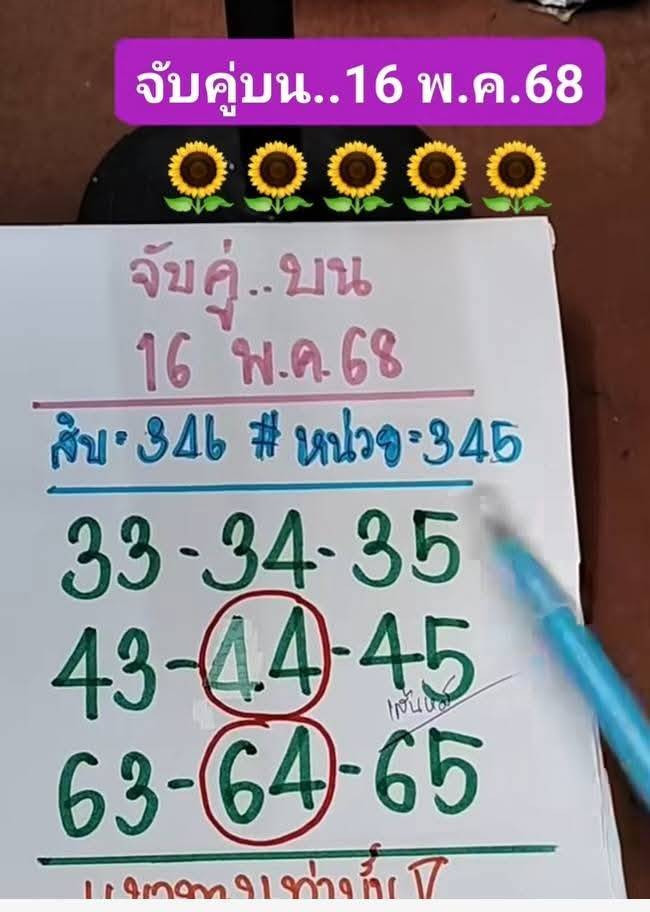 จับคู่บน..16 พ.ค.68
จับคู่..บน
16 พ.ค.68
สิบ=346 # หน่วย=345
33-34-35
43-44-45
63-64-65